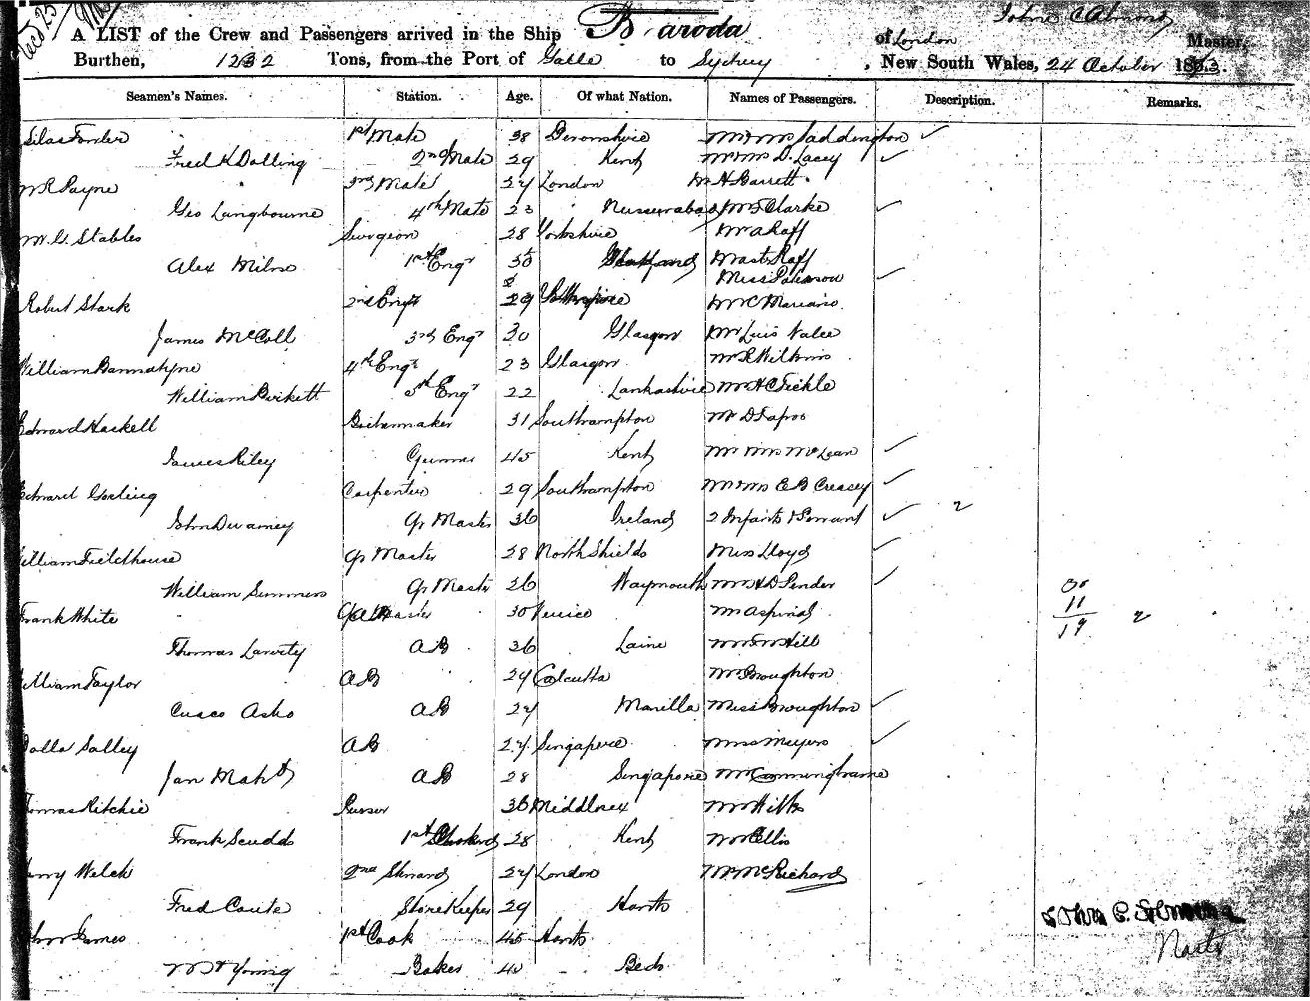 John C Almond
A LIST of the Crew and Passengers arrived in the Ship Baroda of London Master,
Burthen, 1232 Tons, from the Port of Galle to Sydney, New South Wales, 24 October 1873.
Seamen's Names. Station. Age. Of what Nation. Names of Passengers. Description. Remarks.
Silas 1st Mate 38 Devonshire Mr & Mrs Saddington
Fred K Dolling 2nd Mate 29 Kent Mr & Mrs D. Lacey
W R Payne 3rd Mate 24 London Mr H Barrett
Geo Langbourne 4th Mate 23 Clarke
W. G. Stables Surgeon 28 Yorkshire Mr A Raff
Alex Milne 1st Engr Mast Raff
Miss Paterson
Robert Stark 2nd Engr 29 Mr C Mariano
James McColl 3rd Engr 30 Glasgow Mr Luis
William Bannatyne 4th Engr 23 Glasgow Mr R Wilkins
William Birkett 5th Engr 22 Lankashire Mr H C Fickle
Edward Haskell Boilermaker 31 Southampton Mr D
James Riley Gunner 45 Kent Mr Mrs McLean
Edward Gosling Carpenter 29 Southampton Mr & Mrs E B Creasey
John Qr Master 36 Ireland 2 Infants & Servant 2
William Fieldhouse Qr Master 28 North Shields Miss Lloyd
William Simmers Qr Master 26 Waymouth Mrs H D Pender
30
Frank White Qr Master 30 Venice Mr Aspinal
11
19 2
Thomas Laverty AB 36 Laine Hill
William Taylor AB 24 Calcutta Mr Broughton
Cusco Asho AB 24 Manilla Miss Broughton
Salley AB 24 Singapore Mrs Meyers
Jan AB 28 Singapore Mr Cunninghame
Thomas Ritchie Purser 36 Middlesex Mr Hilts
Frank Scudds 1st 28 Kent Mr Ellis
Welch 2nd Steward 24 London Mr McRichard
Fred Caute StoreKeeper 29 Hants
John James 1st Cook 45 Hants
Wm Young Baker 40 Beds